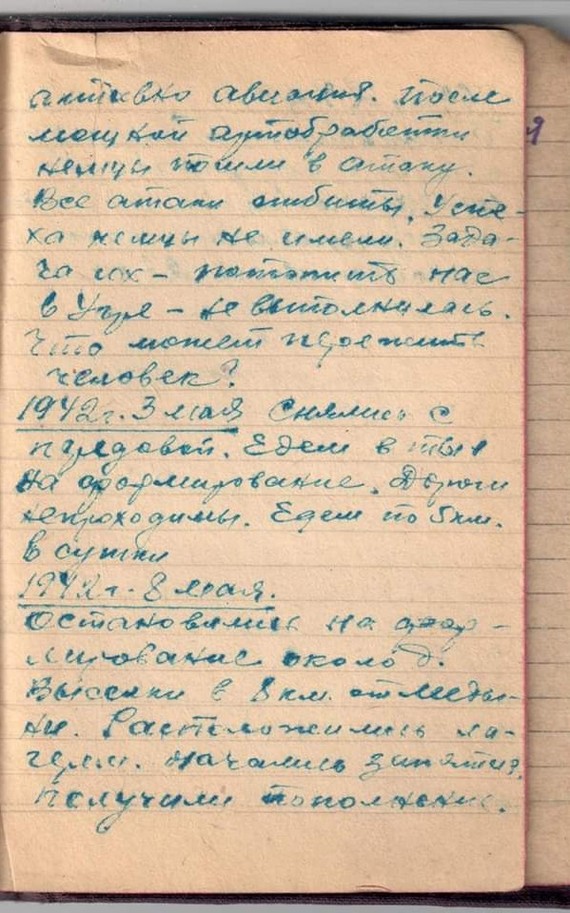 активно авиация. После
мощной артобработки
немцы пошли в атаку.
Все атаки отбиты. Успе-
ха немцы не имели. Зада-
ча их - потопить нас
в Угре - не выполнилась.
Что может пережить
человек?
1942г. 3 мая Снялись с
передовой. Едем в тыл
на формирование. Дороги
непроходимы. Едем по 5 км.
в сутки
1942г. 8 мая.
Остановились на фор-
мирование около д.
в 8 км. от Меды-
ни. Расположились ла-
герем. Начались занятия.
Получили пополнение.
я